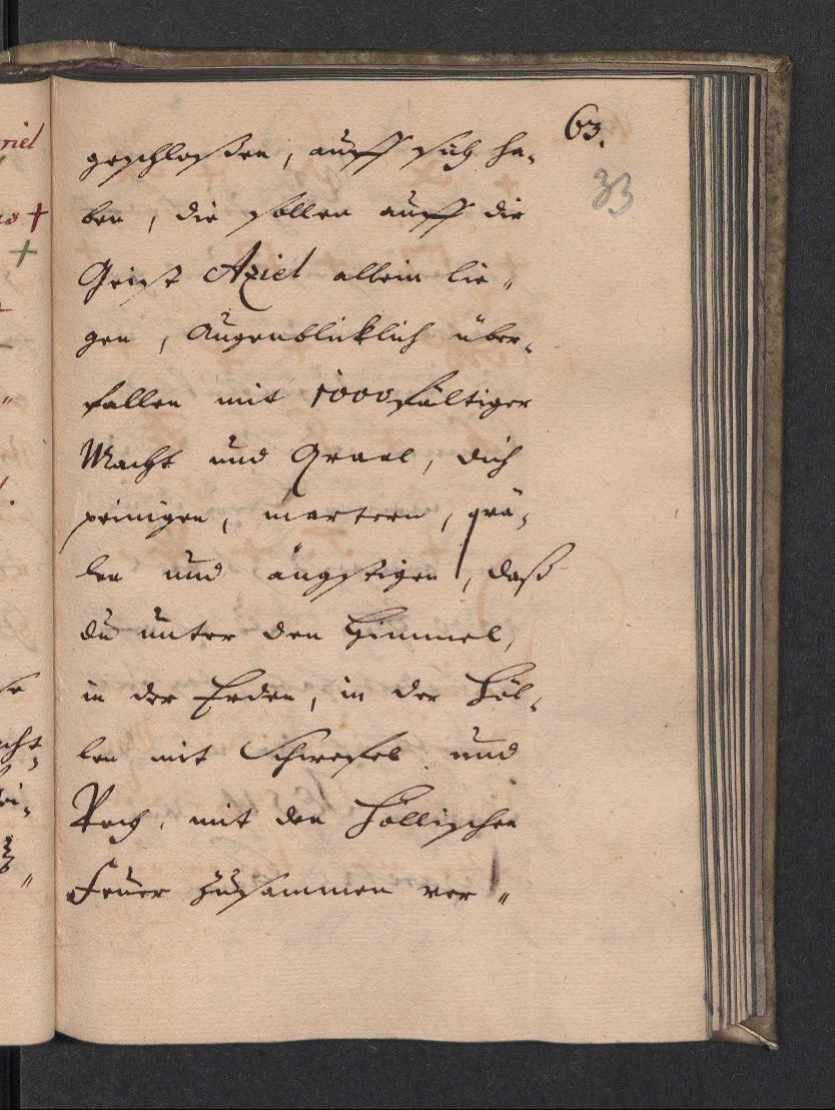 63.
33
geschloßen, auff sich ha-
ben, die sollen auff die
Geist Aziel allein lie-
gen, Augenblicklich über-
fallen mit 1000fältiger
Macht und Quael, dich
peinigen, martern, quä-
len und ängstigen, daß
du unter den Himmel,
in der Erden, in der Höl-
len mit Schwefel und
Pech, mit den Höllischen
Feuer zusammen ver-
niel